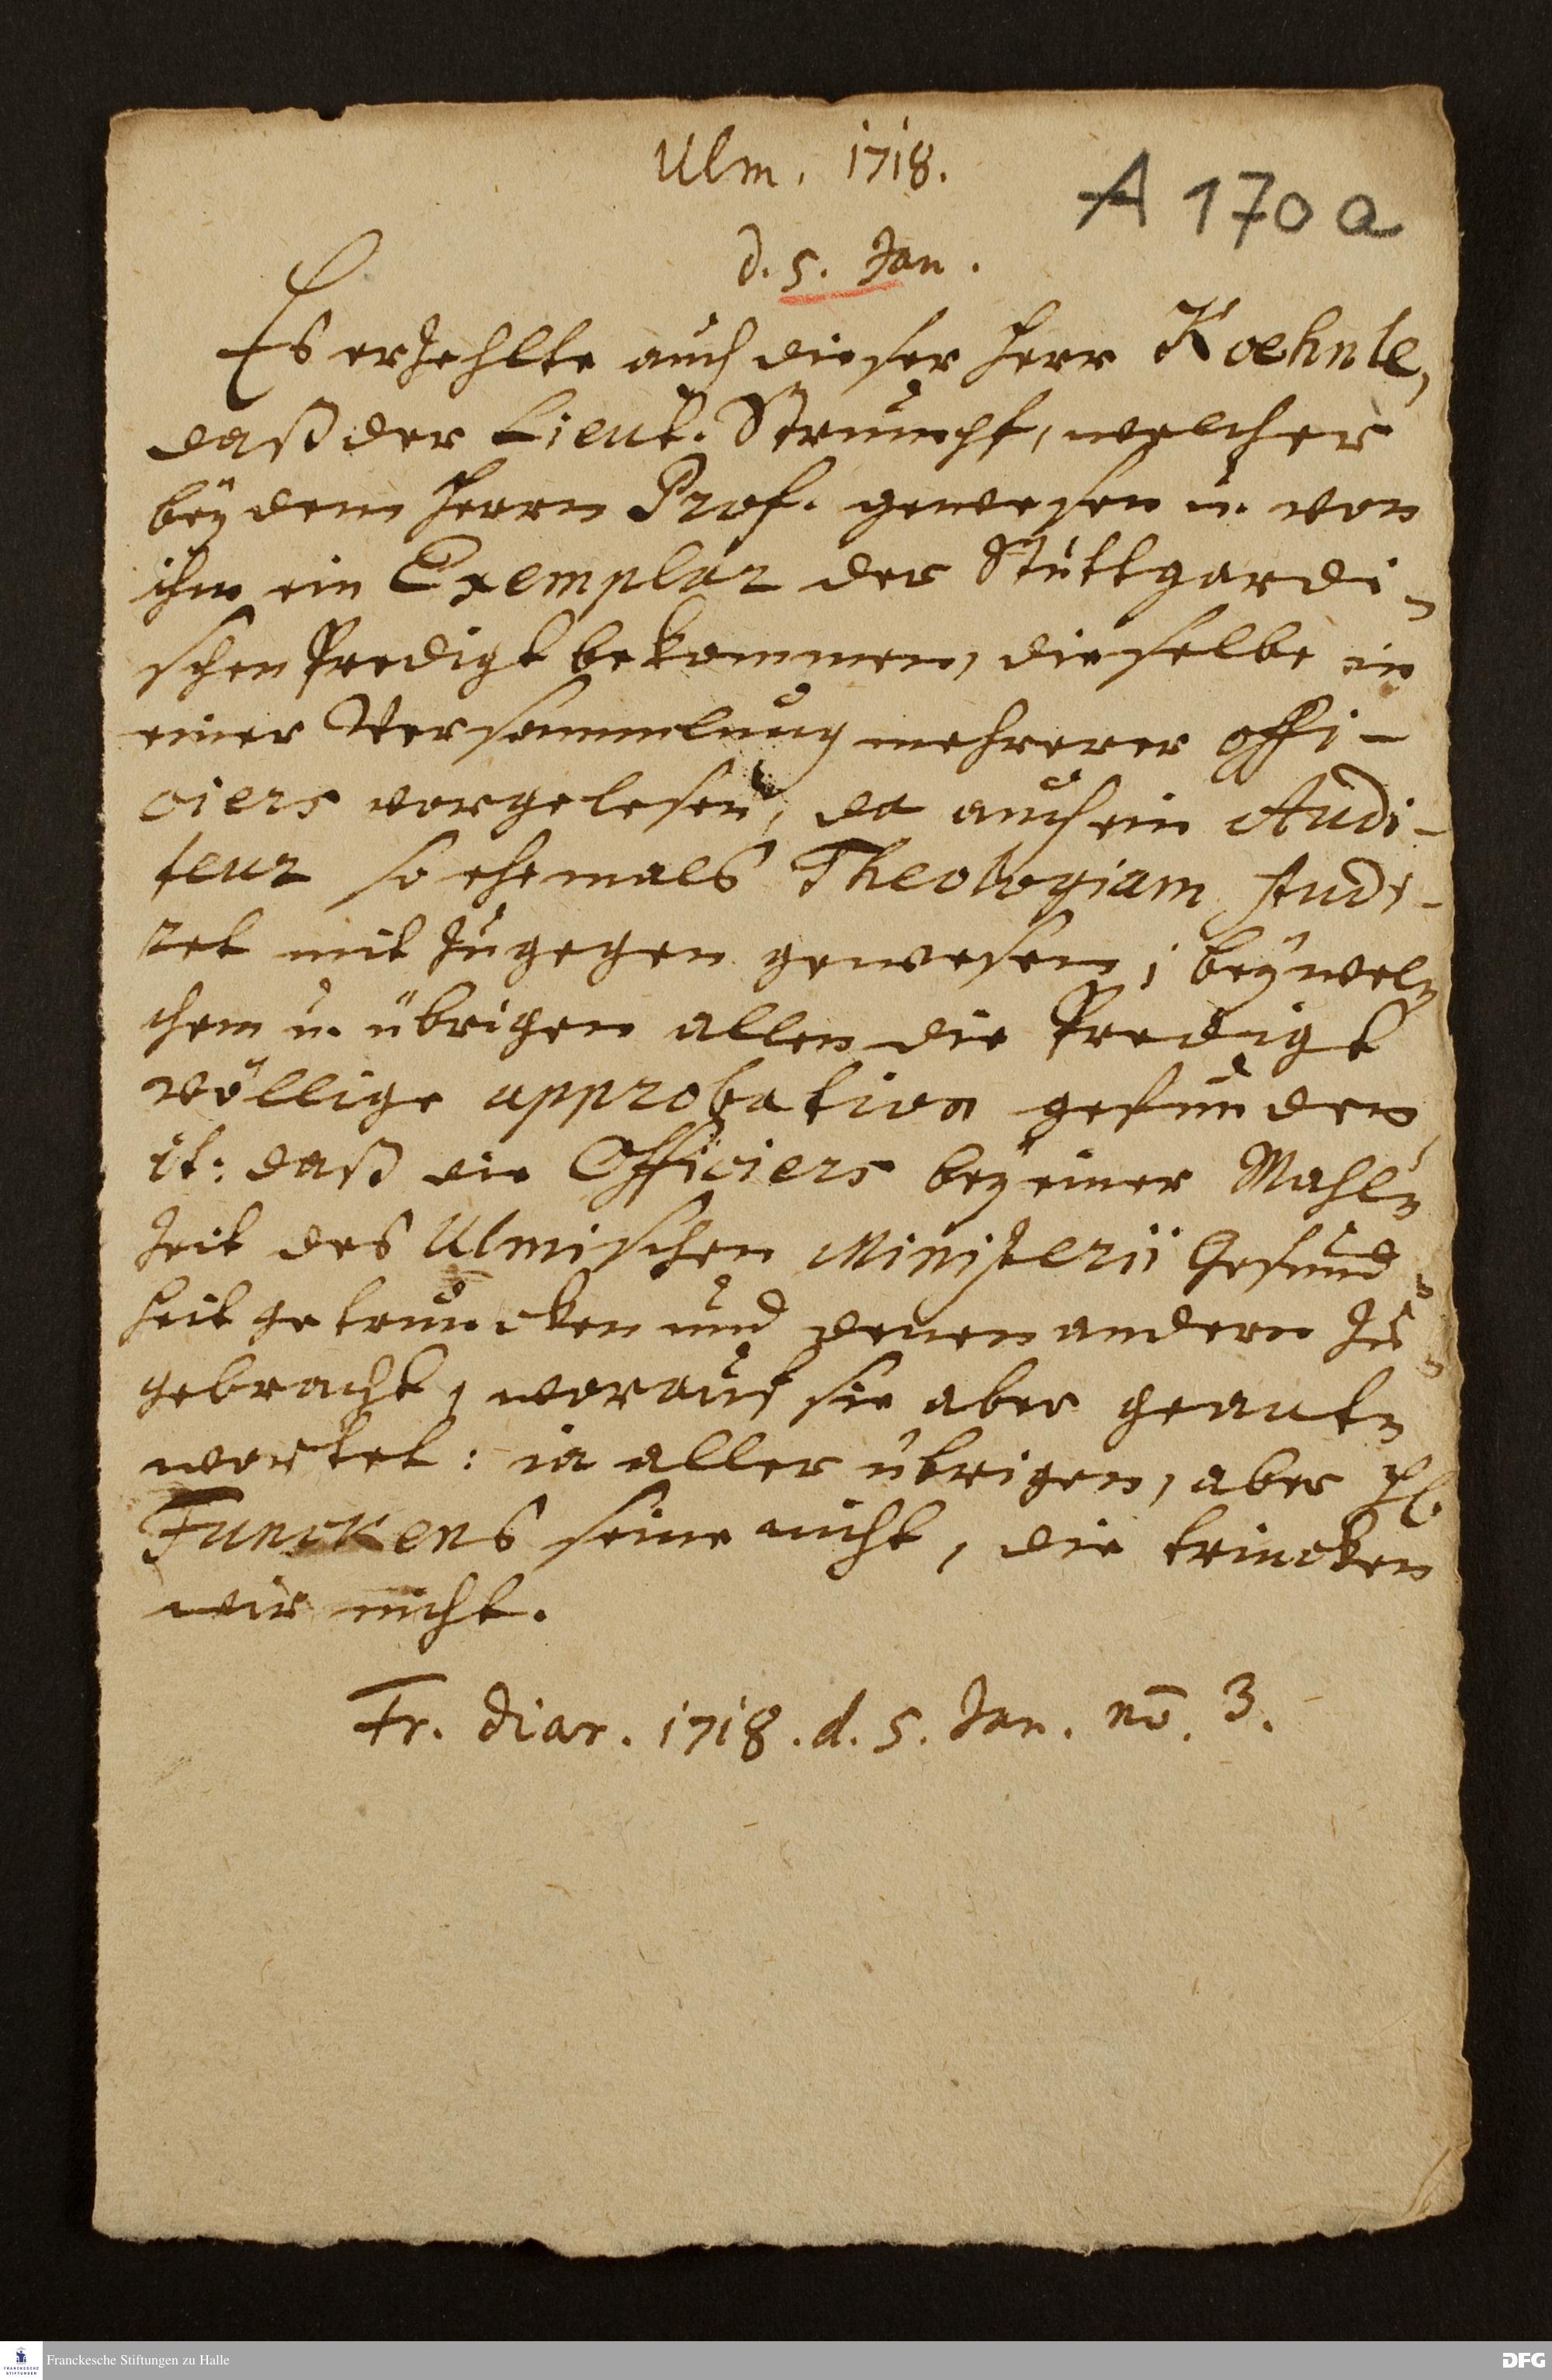 Ulm. 1718.
A 170 a
d. 5. Jan.
Es erzehlte auch dieser Herr Koehnle,
daß der Lieut. Strumpf, welcher
bey dem Herrn Prof. gewesen u. von
ihm ein Exemplar der Stuttgardi-
schen Predigt bekommen, dieselbe in
einer Versammlung mehrerer offi-
ciers vorgelesen, da auch ein Audi-
teur so ehemals Theologiam studi-
ret mit zugegen gewesen; bey wel-
chem u. übrigen allen die Predigt
völlige approbation gefunden,
it: daß die Officiers bey einer Mahl-
zeit des Ulmischen Ministerii Gesund-
heit getruncken und denen andern zu-
gebracht, worauf sie aber geant-
wortet: ja aller übrigen, aber H.
Funckens seine nicht, die trincken
wir nicht.
Fr. diar. 1718. d. 5. Jan. no. 3.
FRANCKESCHE STIFTUNGEN
Franckesche Stiftungen zu Halle
DFG